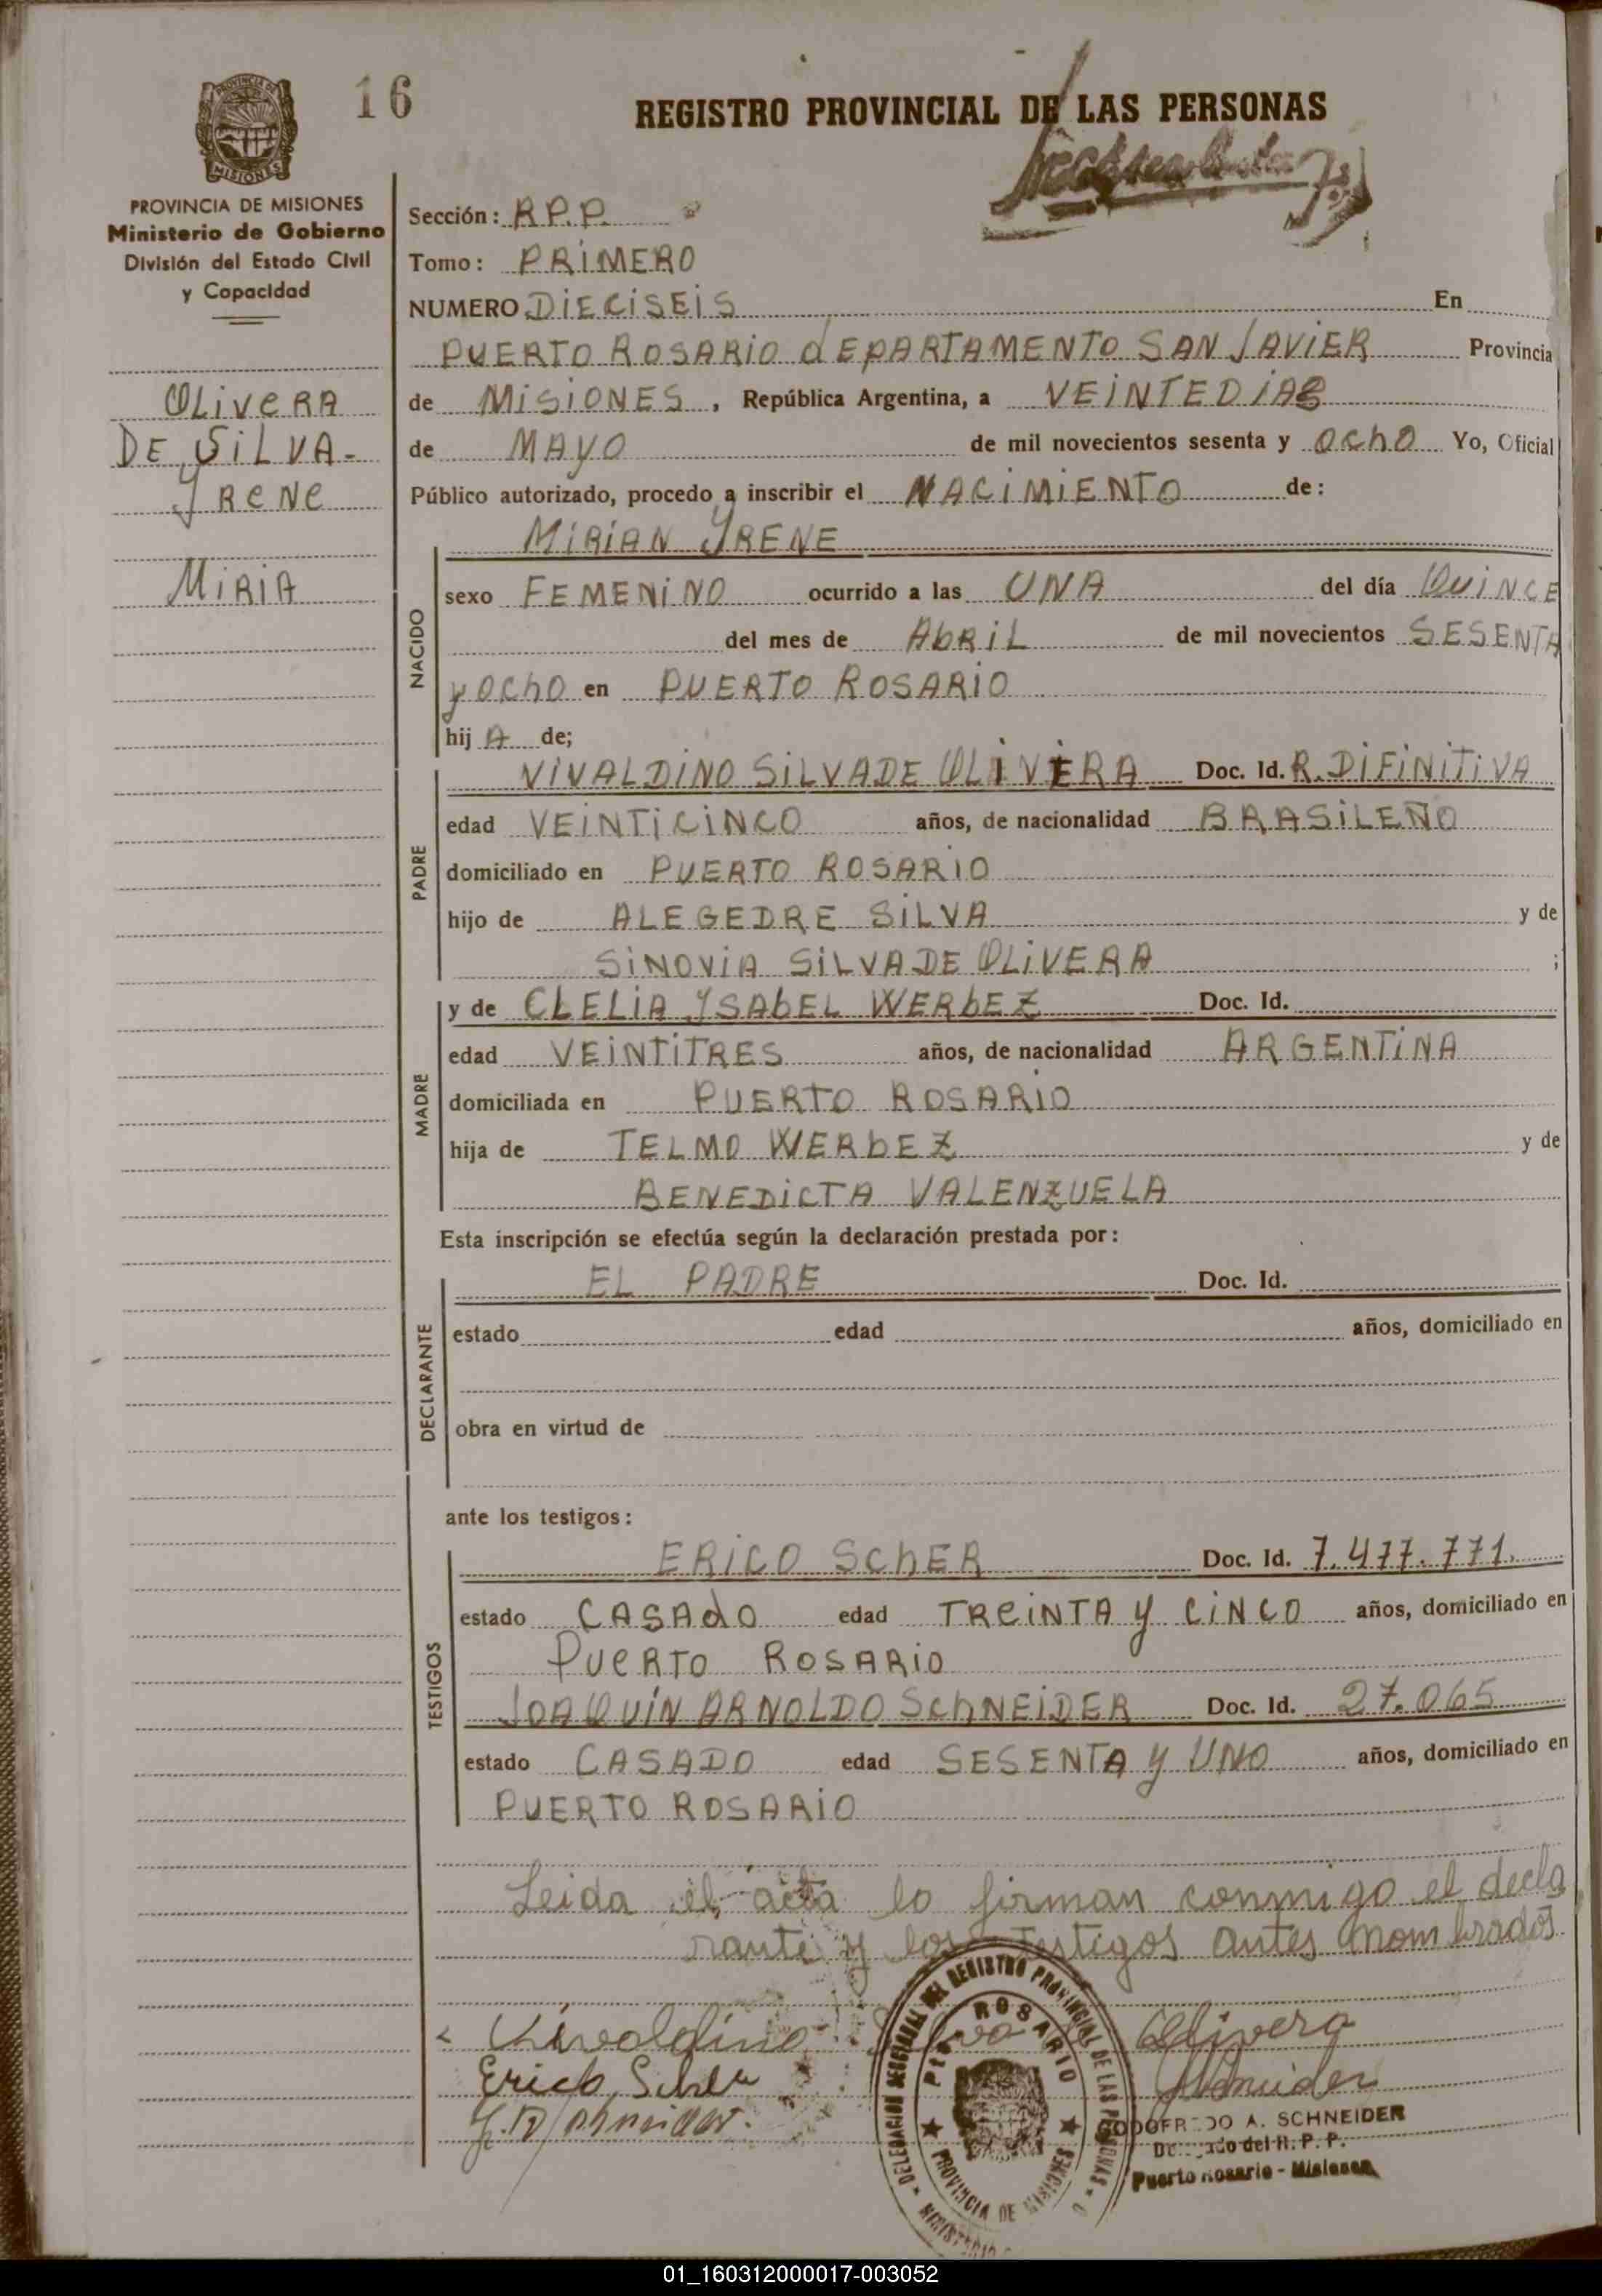 16
REGISTRO PROVINCIAL DE LAS PERSONAS
PROVINCIA DE MISIONES
Ministerio de Gobierno
División del Estado Civil
y Capacidad
OLIVERA
DE SILVA.-
YRENE
MIRIA
Sección: R.P.P.
Tomo: PRIMERO
NUMERO DIECISEIS En
PUERTO ROSARIO dEPARTAMENTO SAN JAVIER Provincia
de MISIONES, República Argentina, a VEINTE DIAS
de MAYO de mil novecientos sesenta y OchO Yo, Oficial
Público autorizado, procedo a inscribir el NACIMIENTO de:
MIRIAN YRENE
NACIDO
sexo FEMENINO ocurrido a las UNA del día QUINCE
del mes de AbRIL de mil novecientos SESENTA
y OchO en PUERTO ROSARIO
hij A de;
PADRE
VIVALDINO SILVA DE OLIVERA Doc. Id. R. DIFINITIVA
edad VEINTICINCO años, de nacionalidad BRASILEÑO
domiciliado en PUERTO ROSARIO
hijo de ALEGEDRE SILVA y de
SINOVIA SILVA DE OLIVERA ;
MADRE
y de CLELIA YSAbEL WERbEZ Doc. Id.
edad VEINTITRES años, de nacionalidad ARGENTINA
domiciliada en PUERTO ROSARIO
hija de TELMO WERbEZ y de
BENEDICTA VALENZUELA
Esta inscripción se efectúa según la declaración prestada por:
DECLARANTE
EL PADRE Doc. Id.
estado edad años, domiciliado en
obra en virtud de
ante los testigos:
TESTIGOS
ERICO SChER Doc. Id. 7.477.771.
estado CASAdO edad TREINTA y CINCO años, domiciliado en
PUERTO ROSARIO
JOAQUIN ARNOLDO SChNEIDER Doc. Id. 27.065
estado CASADO edad SESENTA y UNO años, domiciliado en
PUERTO ROSARIO
Leida el acta lo firman conmigo el decla
rante y los testigos antes nombrados
Vivaldino Silva de Olivera
Erico Scher
Schneider
J. A. Schneider.
DELEGACION SECCIONAL DEL REGISTRO PROVINCIAL DE LAS PERSONAS
PTO. ROSARIO
PROVINCIA DE MISIONES
A. SCHNEIDER
del R. P. P.
Puerto Rosario - Misiones
01_160312000017-003052